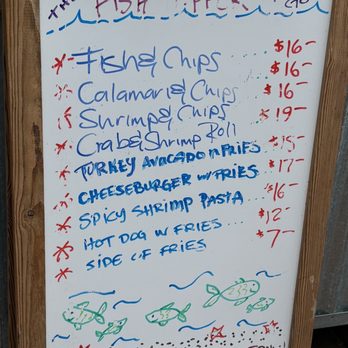 FISH
Fish & Chips $16-
Calamari & Chips $16-
Shrimp & Chips $16-
Crab & Shrimp Roll $19-
TURKEY AVOCADO w FRIES $15-
CHEESEBURGER w/ FRIES $17-
SPICY SHRIMP PASTA $16-
HOT DOG w FRIES $12-
SIDE OF FRIES $7-